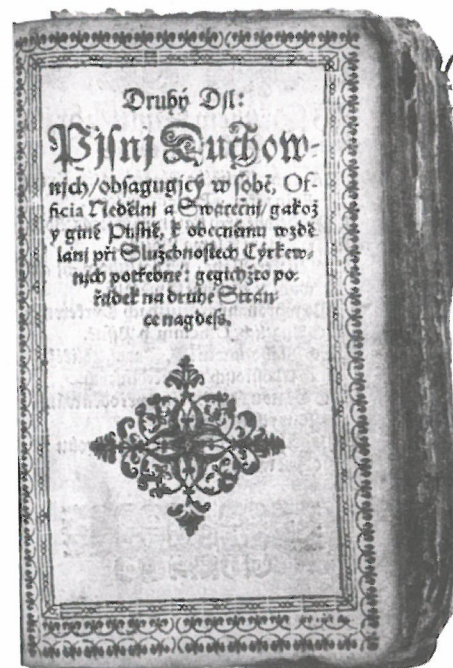 Druhý Djl:
Pjsnj Duchow-
njch/obsagugjcý w sobě, Of-
ficia Nedělnj a Swátečnj/gakož
y giné Pjsně, k obecnému wzdě
lánj při Služebnostech Cýrkew-
njch potřebné: gegichžto po-
řádek na druhé Strán-
ce nagdeš.